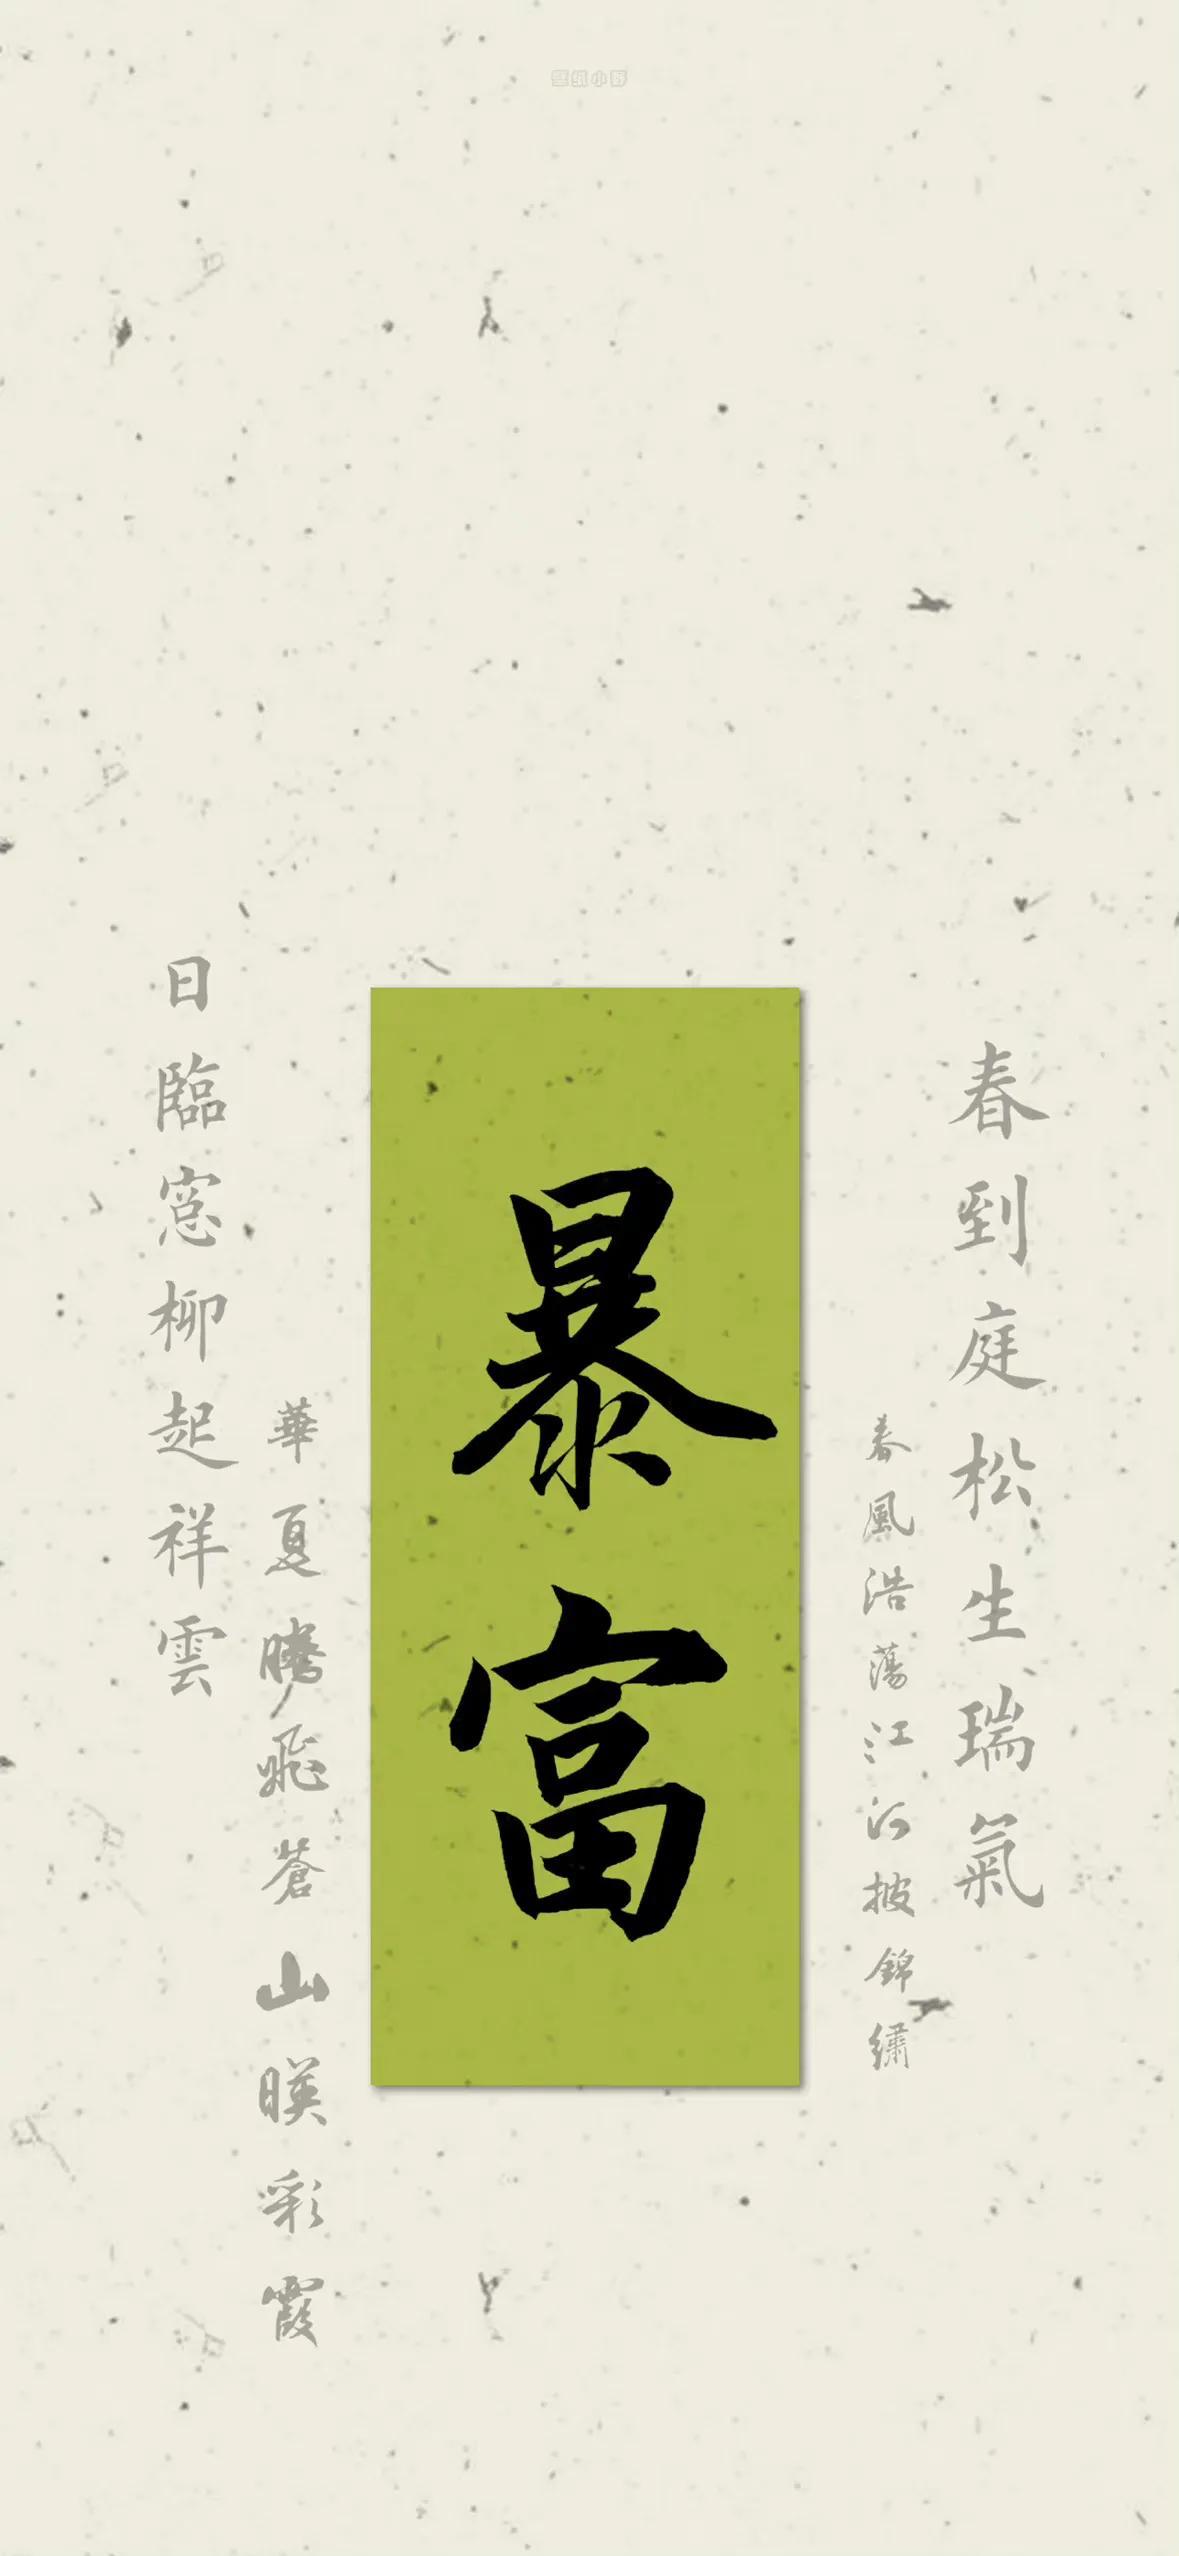 壁纸小野
春到庭松生瑞氣
春風浩蕩江河披錦繡
暴富
華夏騰飛蒼山暎彩霞
日臨窓柳起祥雲